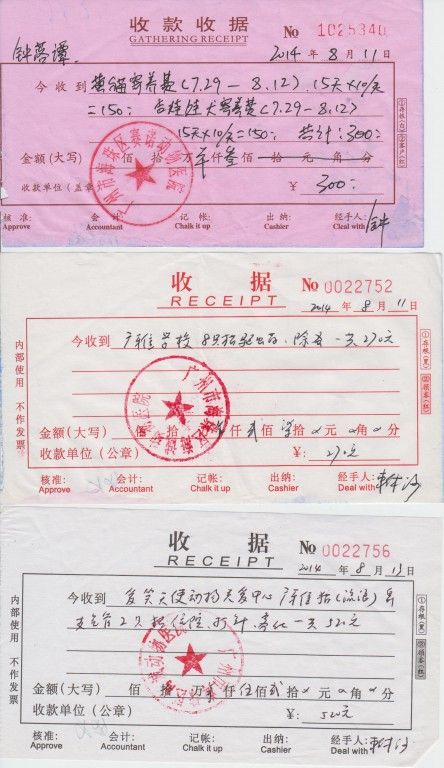 收款收据
GATHERING RECEIPT
No 1025340
2014 年 8 月 11 日
今收到 黄猫寄养费(7.29 — 8.12) 15天×10/天
=150: 犬寄养费(7.29 — 8.12)
15天×10/天=150: 共计:300:
金额(大写) 佰 拾 万 仟叁佰 拾 元 角 分
收款单位(盖章 ¥ 300:
广州市海珠区赛诺动物医院
①存根(白) ②客户(红)
核准: 会计 记帐: 出纳: 经手人: 钟
Approve Accountant Chalk it up Cashier Deal with
收 据
RECEIPT
No 0022752
2014 年 8 月 11 日
今收到 学校 8只猫驱虫 一共270元
金额(大写) 拾 仟贰佰 拾 元 角 分
收款单位(公章) ¥: 270元
广州市海珠区赛诺动物医院
内部使用 不作发票
①存根(黑) ②顾客(红)
核准: 会计: 记帐: 出纳: 经手人:
Approve Accountant Chalk it up Cashier Deal with
收 据
RECEIPT
No 0022756
2014 年 8 月 13 日
今收到 天使动物关爱中心 猫(流浪)
2只猫住院 打针 一共520元
金额(大写) 佰 拾 万 仟伍佰贰拾 元 角 分
收款单位(公章) ¥: 520元
内部使用 不作发票
①存根(黑) ②顾客(红)
核准: 会计: 记帐: 出纳: 经手人:
Approve Accountant Chalk it up Cashier Deal with